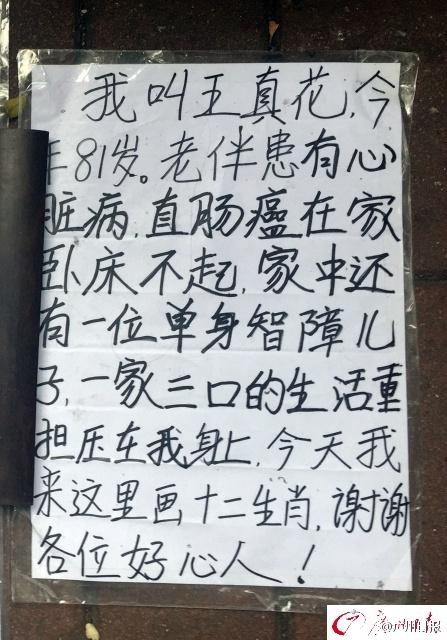 我叫王真花,今
年81岁。老伴患有心
脏病,直肠癌在家
卧床不起,家中还
有一位单身智障儿
子,一家三口的生活重
担压在我身上,今天我
来这里画十二生肖,谢谢
各位好心人!